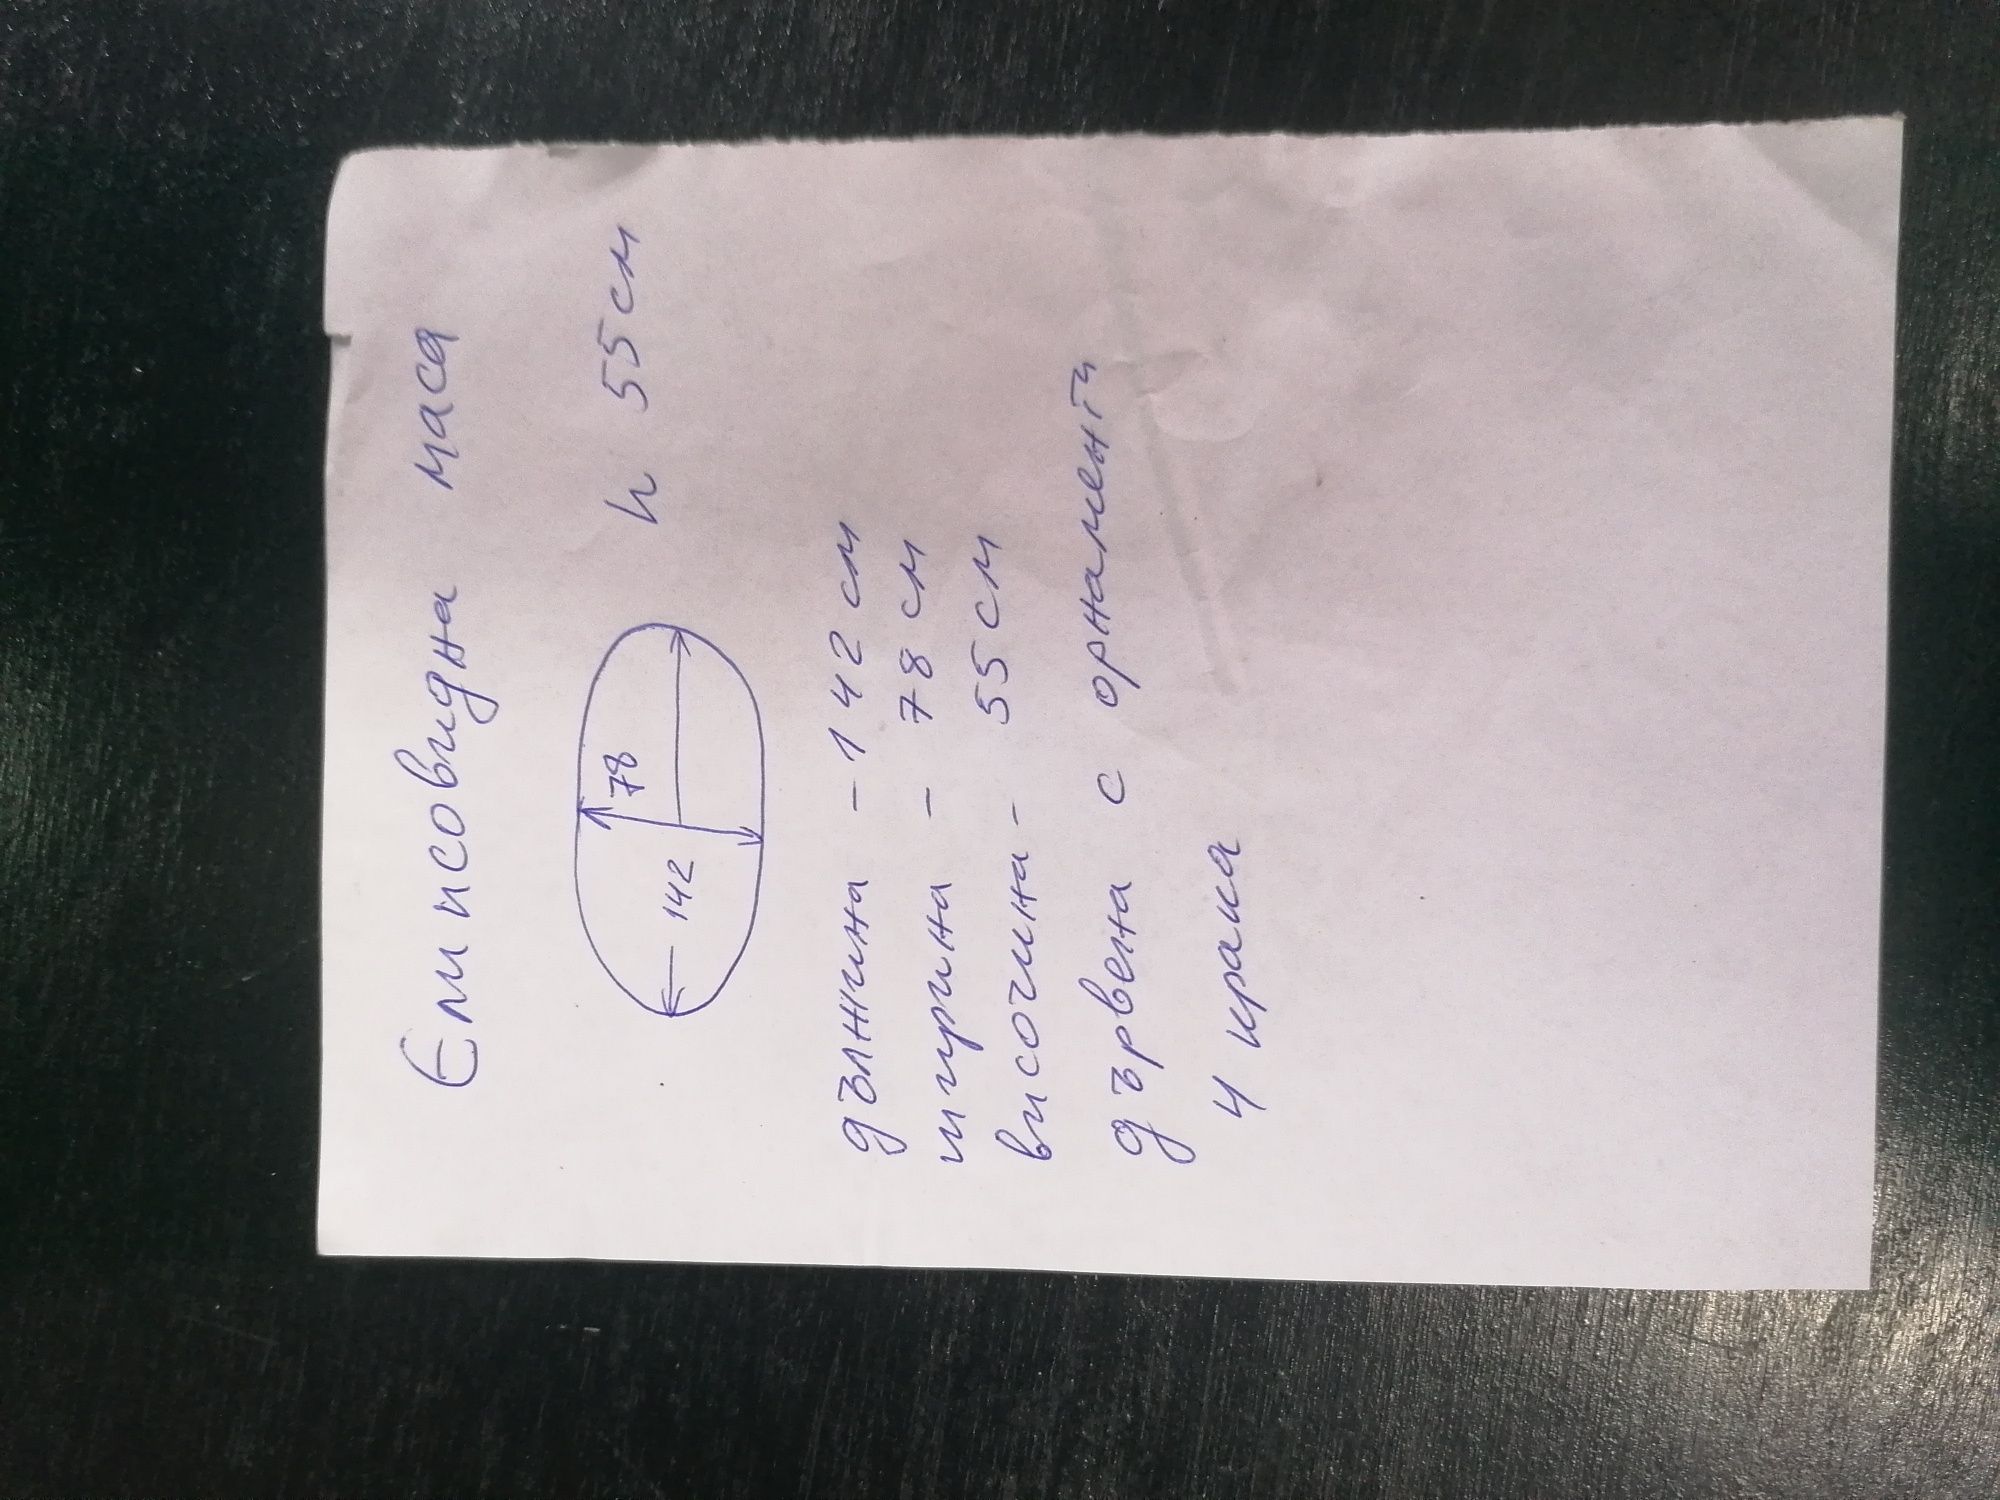 Елисовидна маса
78
142
h 55см
дължина - 142 см
ширина - 78 см
височина - 55 см
дървена с орнаменти
4 крака